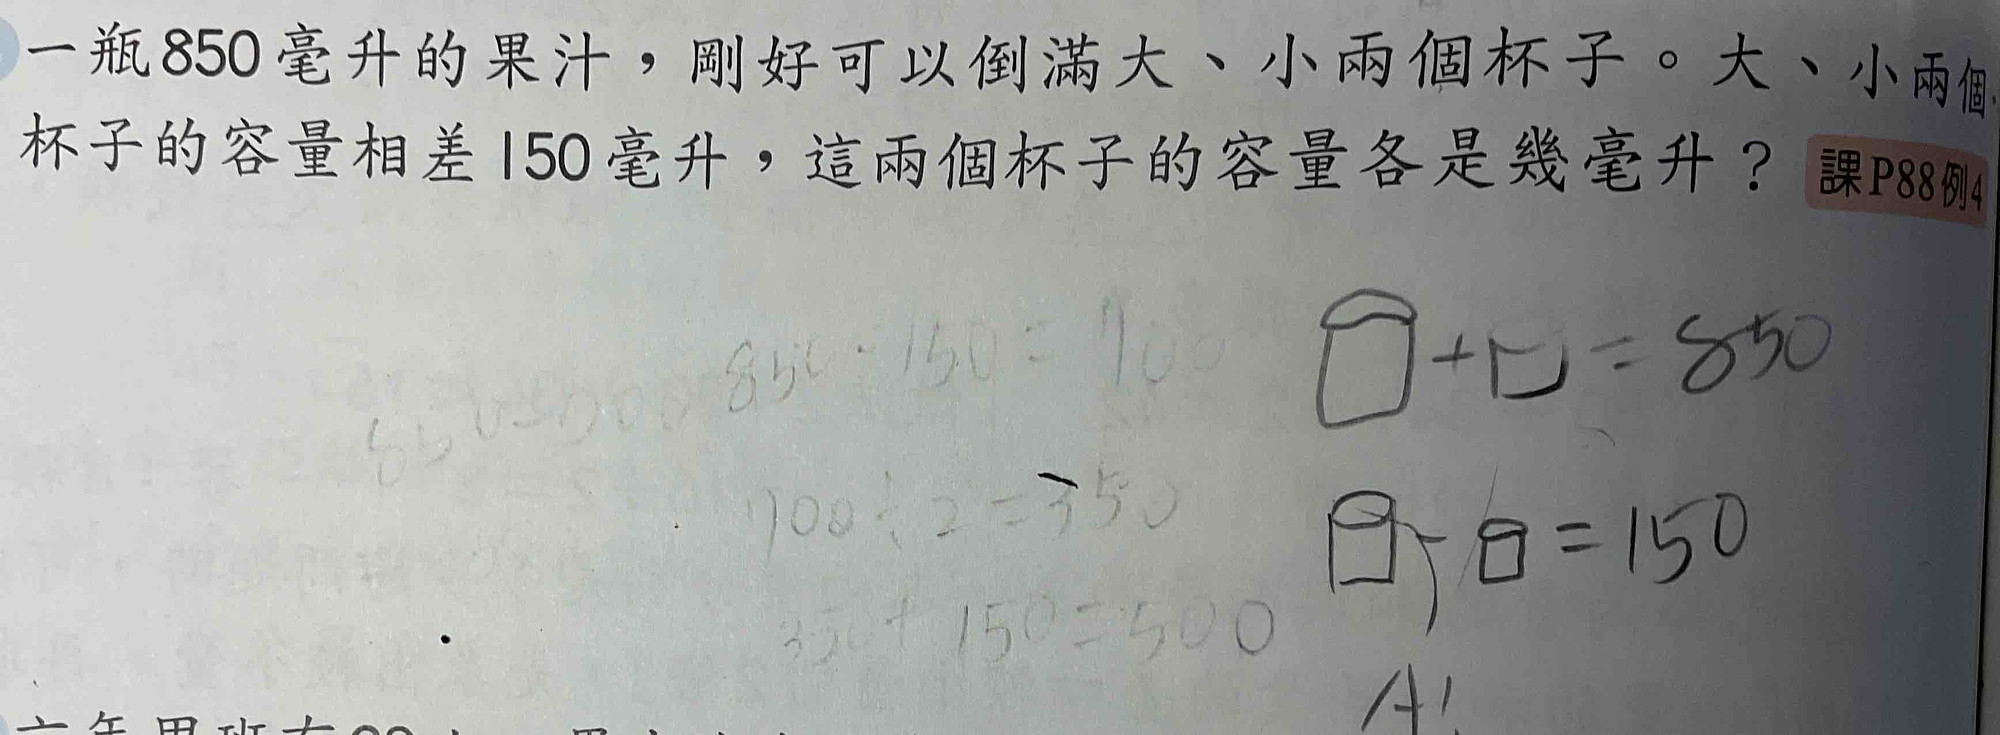 一瓶850毫升的果汁，剛好可以倒滿大、小兩個杯子。大、小兩個
杯子的容量相差150毫升，這兩個杯子的容量各是幾毫升？ 課P88例4
850-150=700
+ = 850
700÷2=350
- = 150
350+150=500
A: